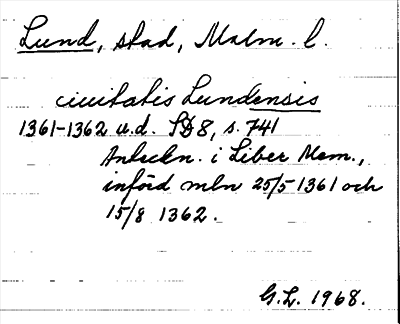 Lund, stad, Malm. l.
civitatis Lundensis
1361-1362 u.d. SD 8, s. 741
Anteckn. i Liber Mem.,
införd mln 25/5 1361 och
15/8 1362.
G.L. 1968.